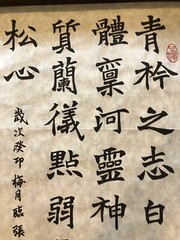 青衿之志白
體稟河靈神
質蘭儀點弱
松心
歲次癸卯梅月臨張